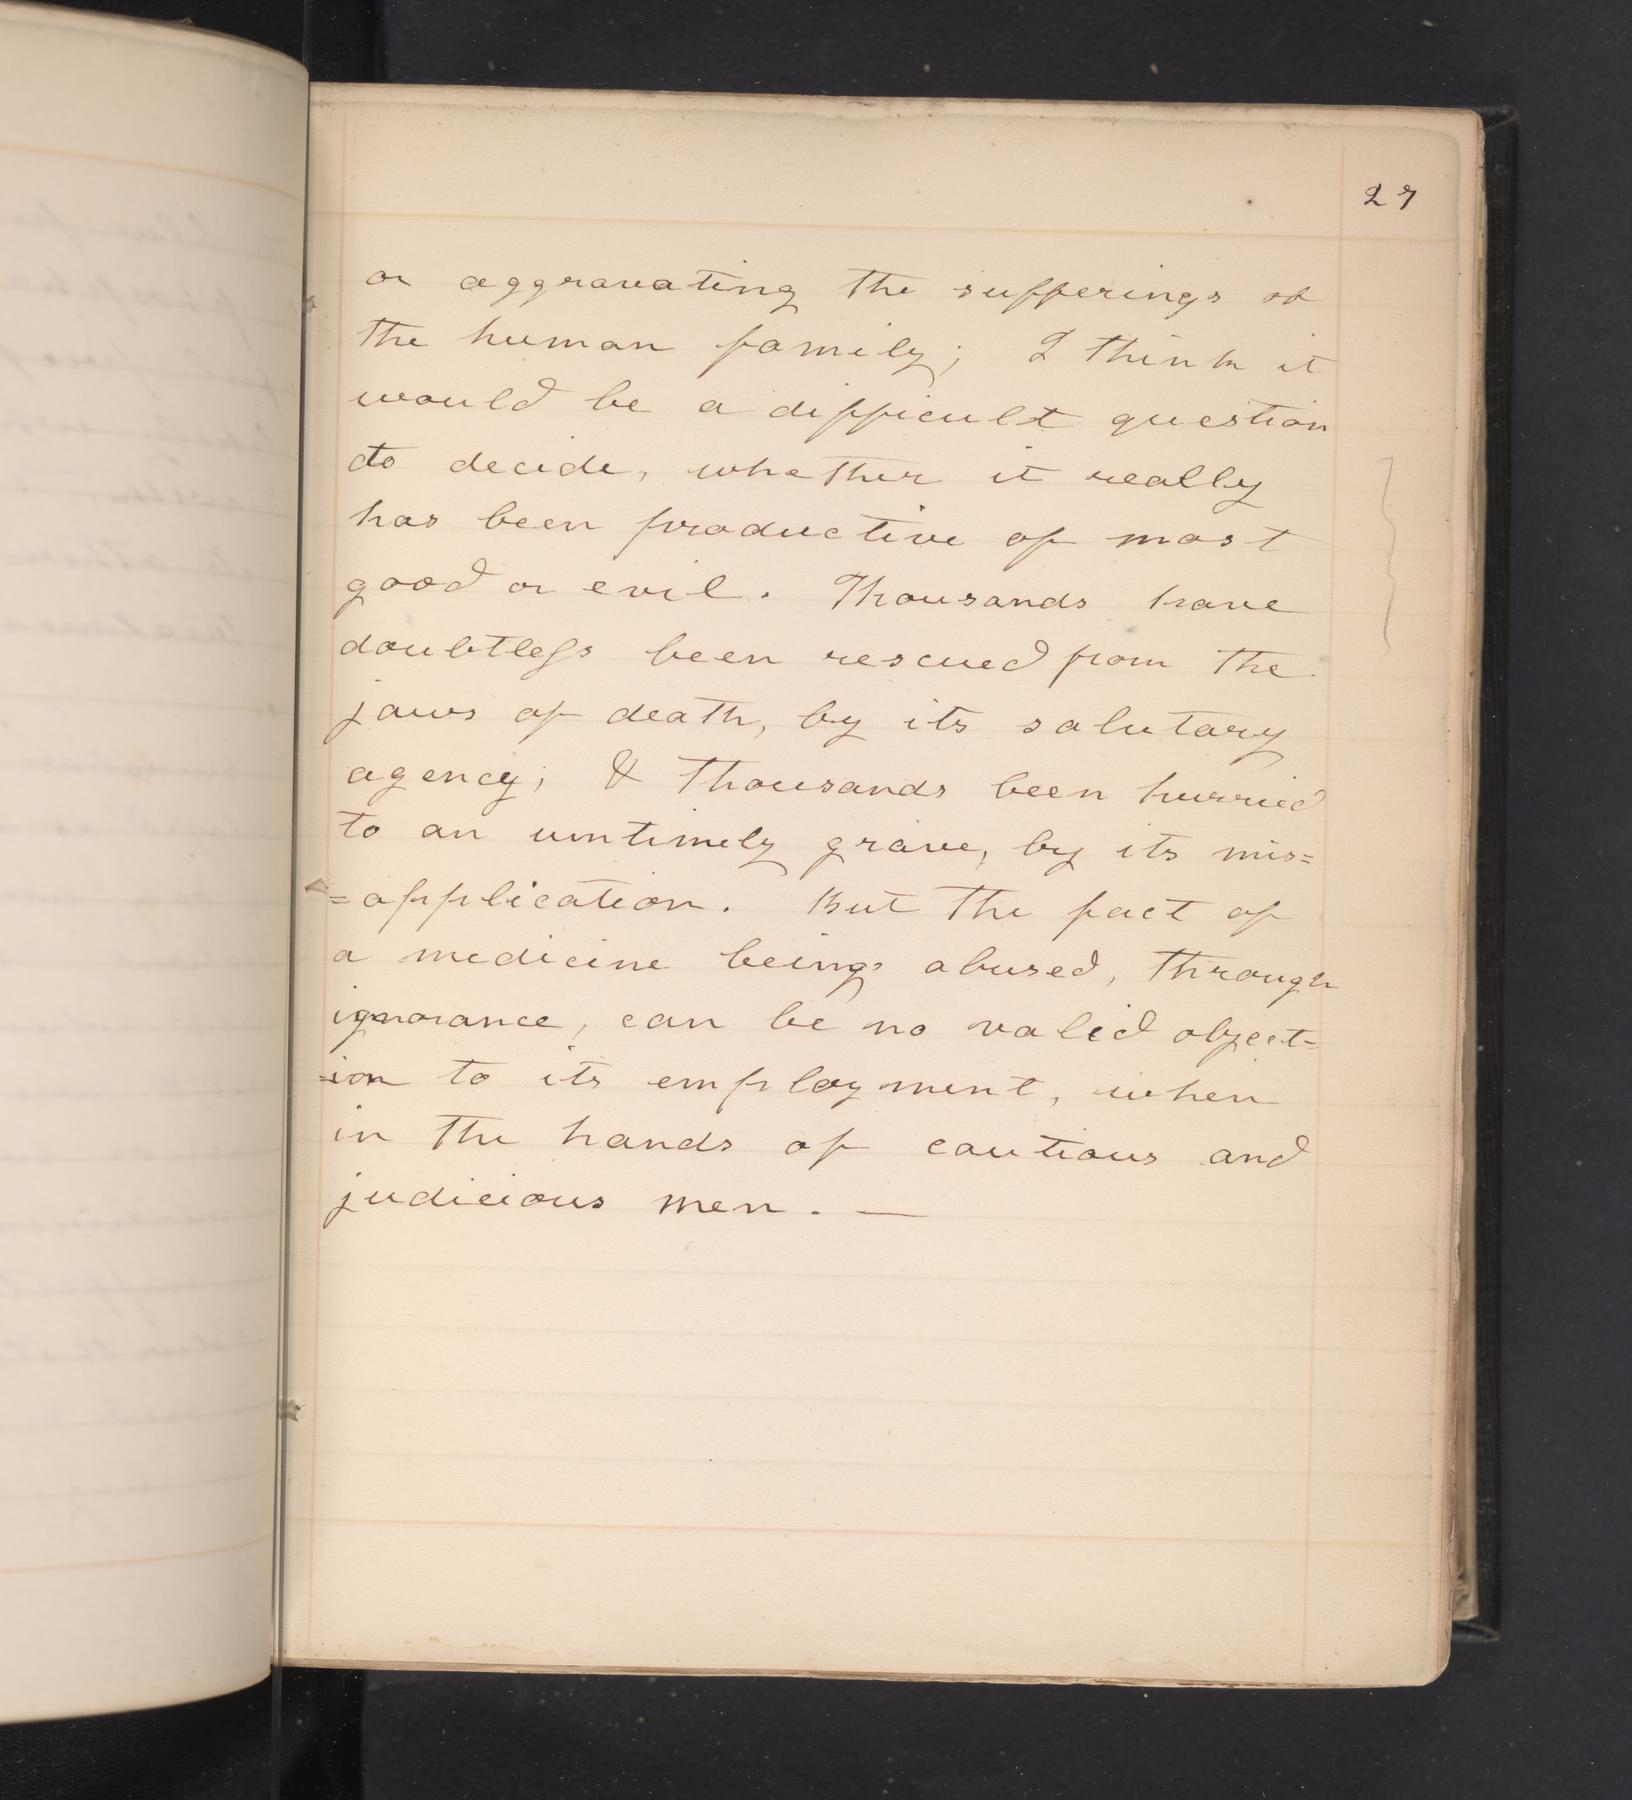 27
or aggravating the sufferings of
the human family; I think it
would be a difficult question
to decide, whether it really
has been productive of most
good or evil. Thousands have
doubtless been rescued from the
jaws of death, by its salutary
agency; & thousands been hurried
to an untimely grave, by its mis=
=application. But the fact of
a medicine being abused, through
ignorance, can be no valid object=
=ion to its employment, when
in the hands of cautious and
judicious men. —